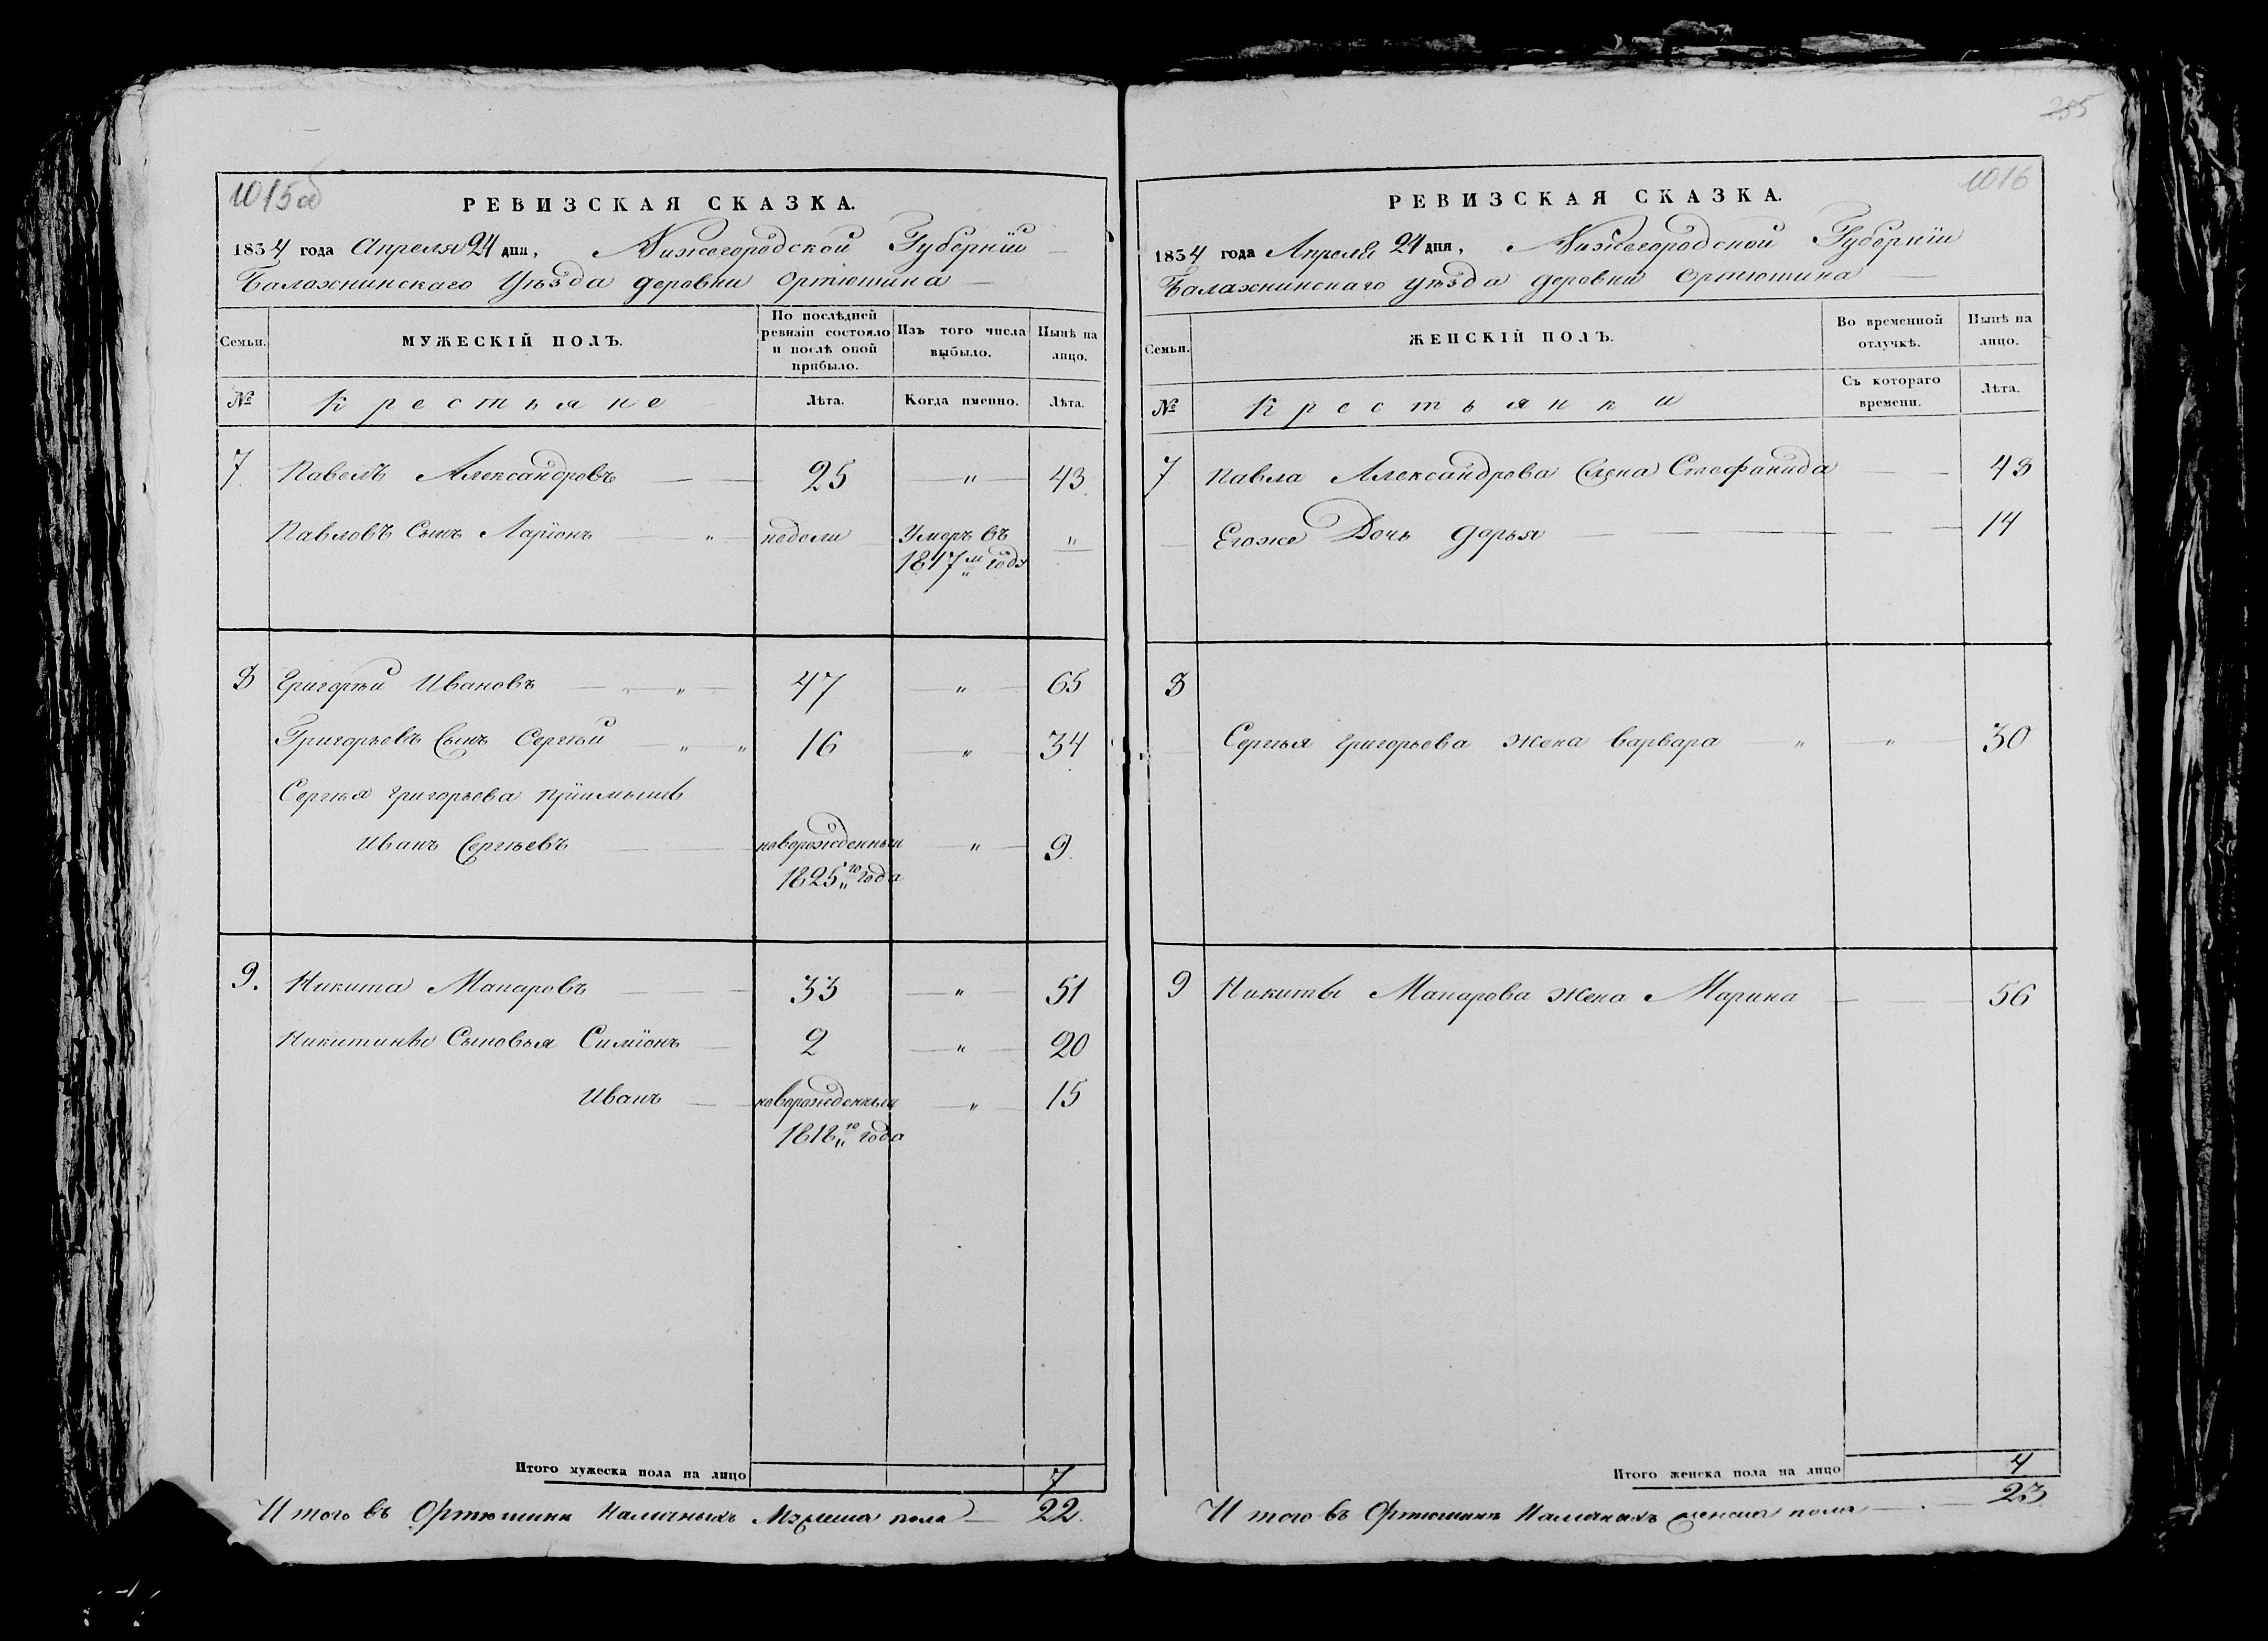 255
1015об
РЕВИЗСКАЯ СКАЗКА.
1834 года Апреля 24 дня, Нижегородской Губернїи
Балахнинскаго Уѣзда деревни Ортюшина
Семьи.
МУЖЕСКІЙ ПОЛЪ.
По послѣдней ревизіи состояло и послѣ оной прибыло.
Изъ того числа выбыло.
Нынѣ на лицо.
№
Крестьяне
Лѣта.
Когда именно.
Лѣта.
7 Павелъ Александровъ 25 " 43
Павловъ Сынъ Ларїонъ " недели Умеръ въ "
1817м году
8 Григорѣй Ивановъ " 47 " 65
Григорьевъ Сынъ Сергѣй " " 16 " 34
Сергѣя Григорьева прїимышъ
Иванъ Сергѣевъ новорожденный " 9
1825го года
9. Никита Макаровъ 33 " 51
Никитины Сыновья Симїонъ 2 " 20
Иванъ новорожденный " 15
1818го года
Итого мужеска пола на лицо 7
Итого въ Ортюшини Наличныхъ Мужеска пола 22.
1016
РЕВИЗСКАЯ СКАЗКА.
1834 года Апреля 24 дня, Нижегородской Губернїи
Балахнинскаго уѣзда деревни Ортюшина
Семьи.
ЖЕНСКІЙ ПОЛЪ.
Во временной отлучкѣ.
Нынѣ на лицо.
№
Крестьянки
Съ котораго времени.
Лѣта.
7 Павла Александрова Жена Стефанида 43
Егоже Дочь Дарья 14
8
Сергѣя Григорьева жена Варвара " " 30
9 Никиты Макарова жена Марина 56
Итого женска пола на лицо 4
Итого въ Ортюшине Наличныхъ женска пола 23